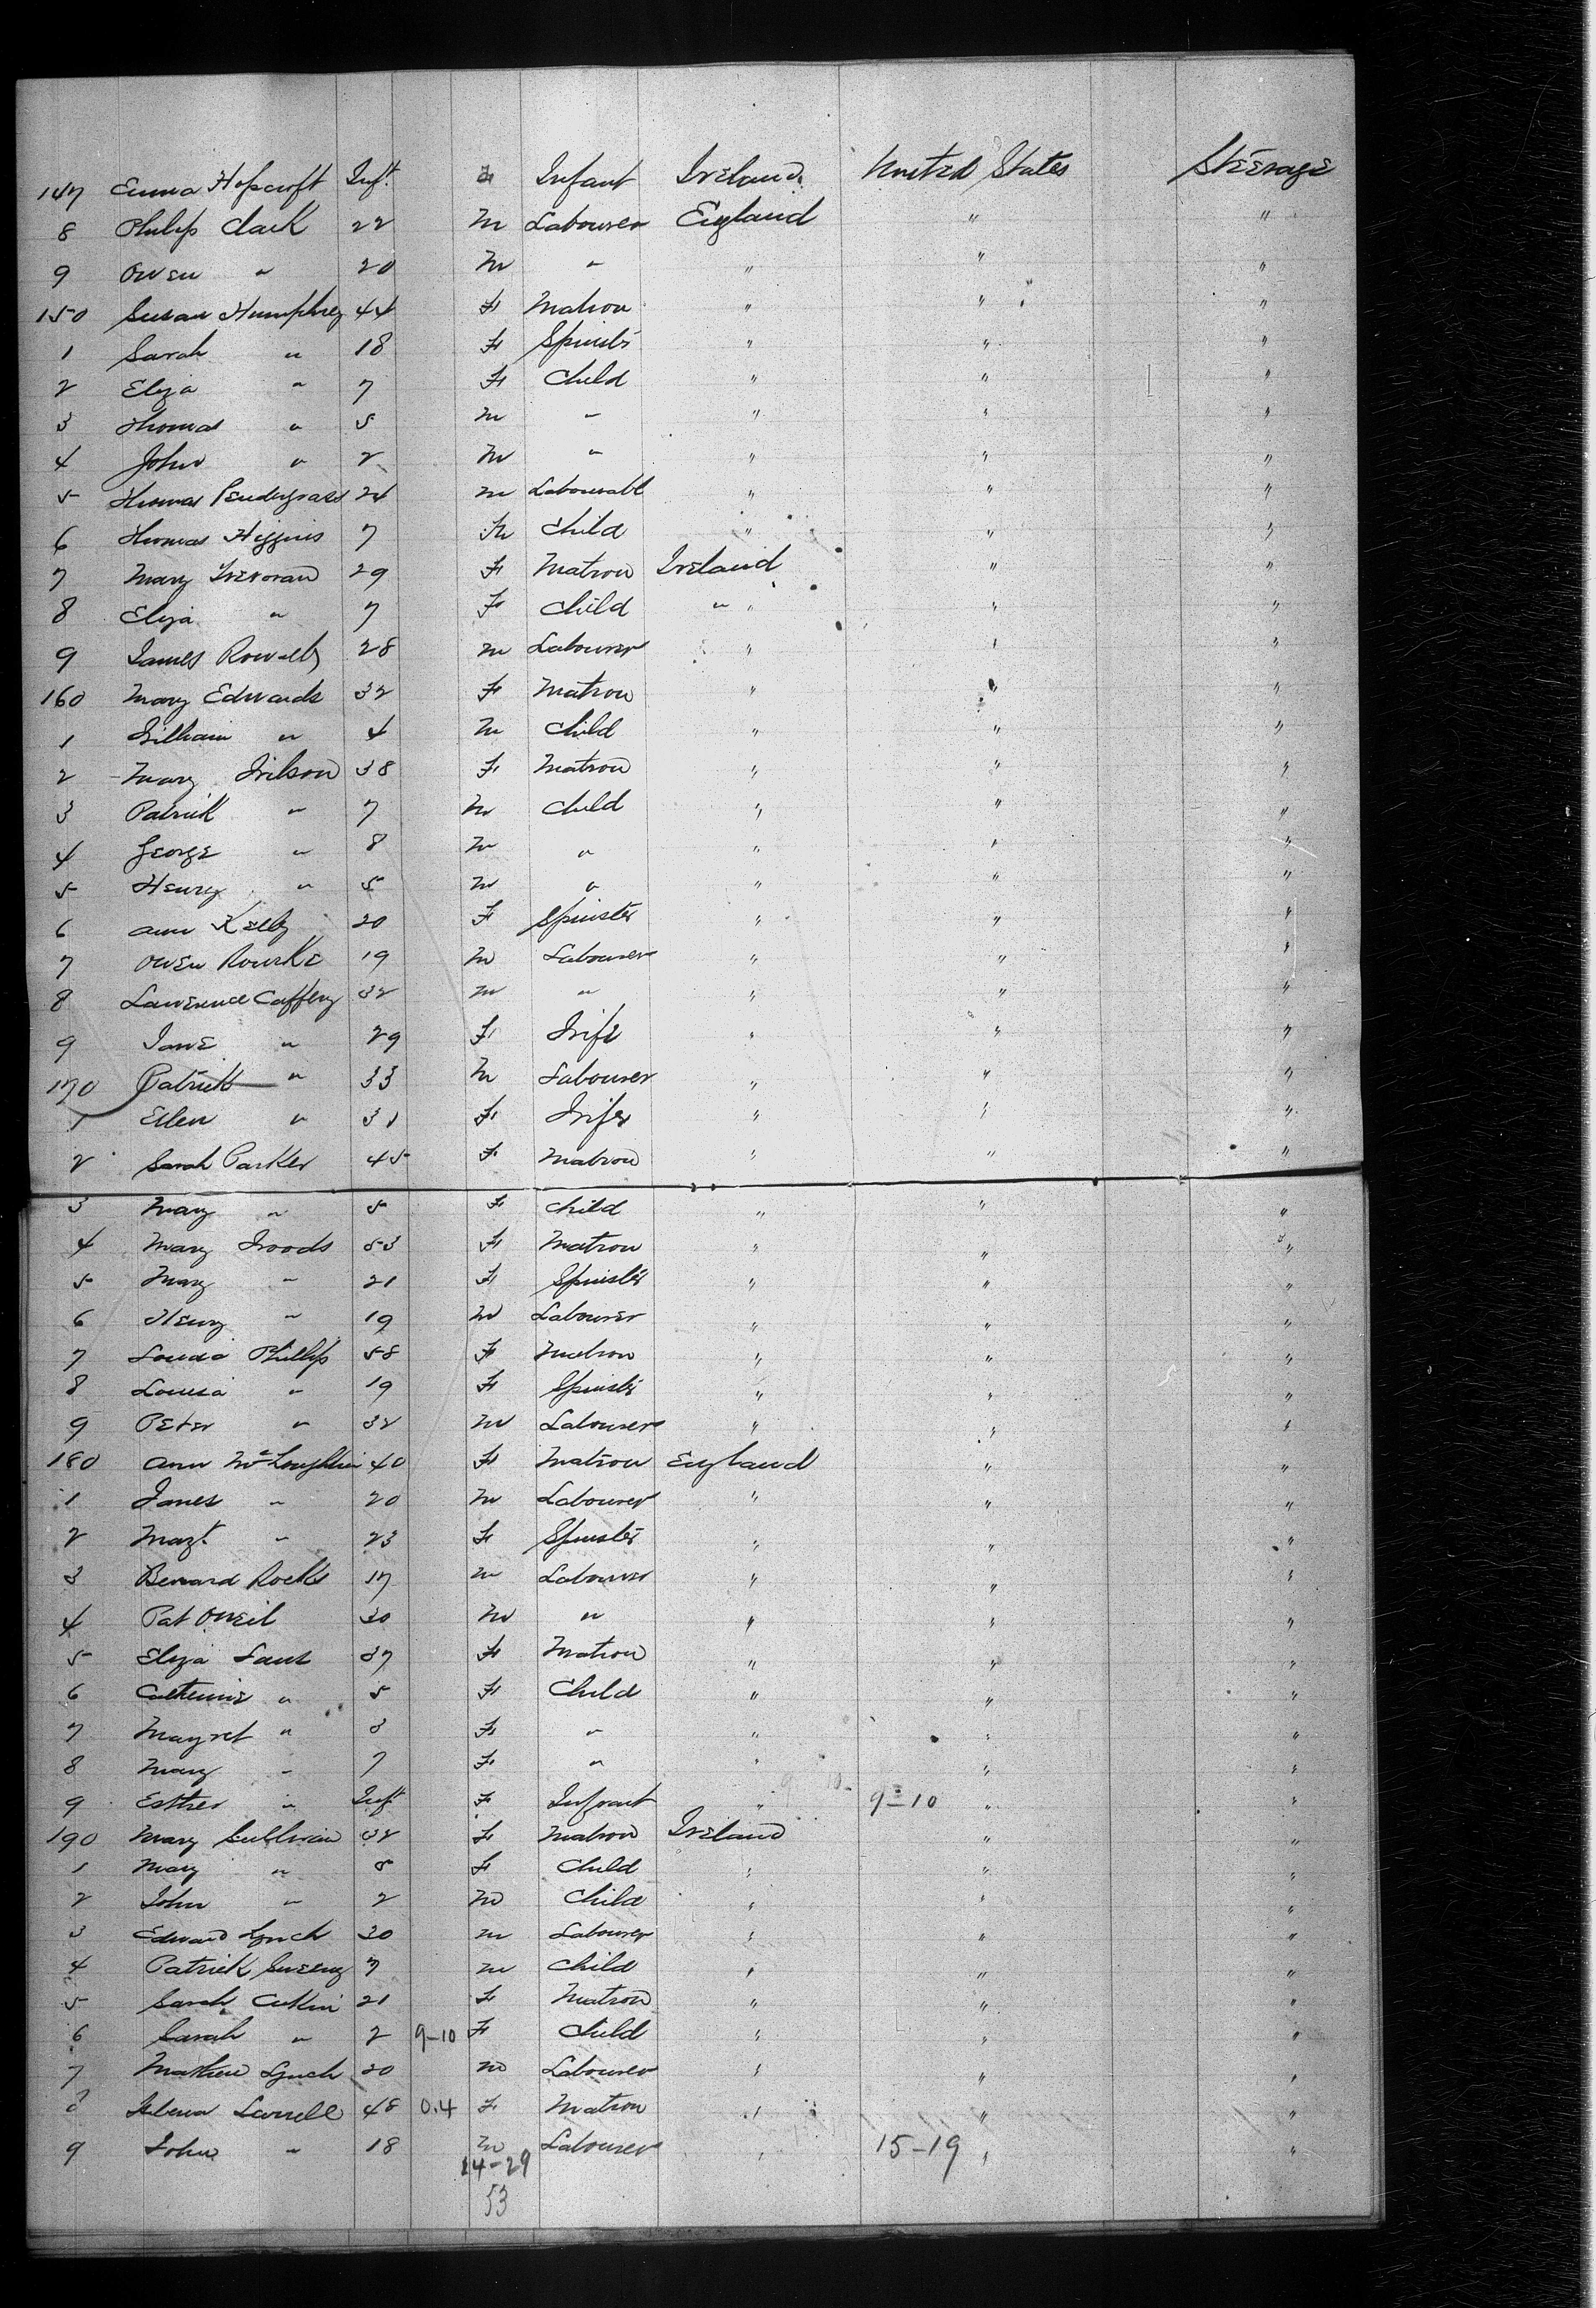 147 Emma Hopcroft Inft. F Infant Ireland United States Steerage
8 Philip Clark 22 M Labourer England " "
9 Owen " 20 M " " " "
150 Susan Humphrey 44 F Matron " " "
1 Sarah " 18 F Spinstr " " "
2 Eliza " 7 F Child " " "
3 Thomas " 5 M " " " "
4 John " 2 M " " " "
5 Thomas Pendergrass 24 M " " "
6 Thomas Higgins 7 M Child " " "
7 Mary 29 F Matron Ireland " "
8 Eliza " 7 F Child " " "
9 James 28 M Labourer " " "
160 Mary Edwards 32 F Matron " " "
1 William " 4 M Child " " "
2 Mary Wilson 38 F Matron " " "
3 Patrick " 7 M Child " " "
4 George " 8 M " " " "
5 Henry " 5 M " " " "
6 Ann Kelly 20 F Spinster " " "
7 Owen Rourke 19 M Labourer " " "
8 Lawrence Caffery 32 M " " " "
9 Jane " 29 F Wife " " "
170 Patrick " 33 M Labourer " " "
1 Ellen " 31 F Wife " " "
2 Sarah Parker 45 F Matron " " "
3 Mary " 5 F Child " " "
4 Mary Woods 53 F Matron " " "
5 Mary " 21 F Spinster " " "
6 Henry " 19 M Labourer " " "
7 Phillips 58 F Matron " " "
8 Louisa " 19 F Spinstr " " "
9 Peter " 32 M Labourer " " "
180 Ann McLoughlin 40 F Matron England " "
1 James " 20 M Labourer " " "
2 Margt. " 23 F Spinster " " "
3 Bernard Rocks 17 M Labourer " " "
4 Pat ONeil 30 M " " " "
5 Eliza 37 F Matron " " "
6 Catherine " 5 F Child " " "
7 Margret " 3 F " " " "
8 Mary " 7 F " " " "
9 Esther " Inft F Infant " 9-10 " "
190 Mary Sullivan 32 F Matron Ireland " "
1 Mary " 8 F Child " " "
2 John " 2 M Child " " "
3 Edward Lynch 30 M Labourer " " "
4 Patrick Sweeny 7 M Child " " "
5 Sarah 21 F Matron " " "
6 Sarah " 2 9-10 F Child " " "
7 Mathew Lynch 20 M Labourer " " "
8 48 0.4 F Matron " " "
9 John " 18 M Labourer " 15-19 " "
14-29
53